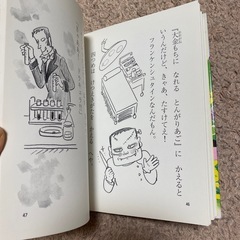 『大金もちに なれる とんがりあご』に かえると
いうんだけど、きゃあ、たすけてえ!
フランケンシュタインなんだもん。
46
47